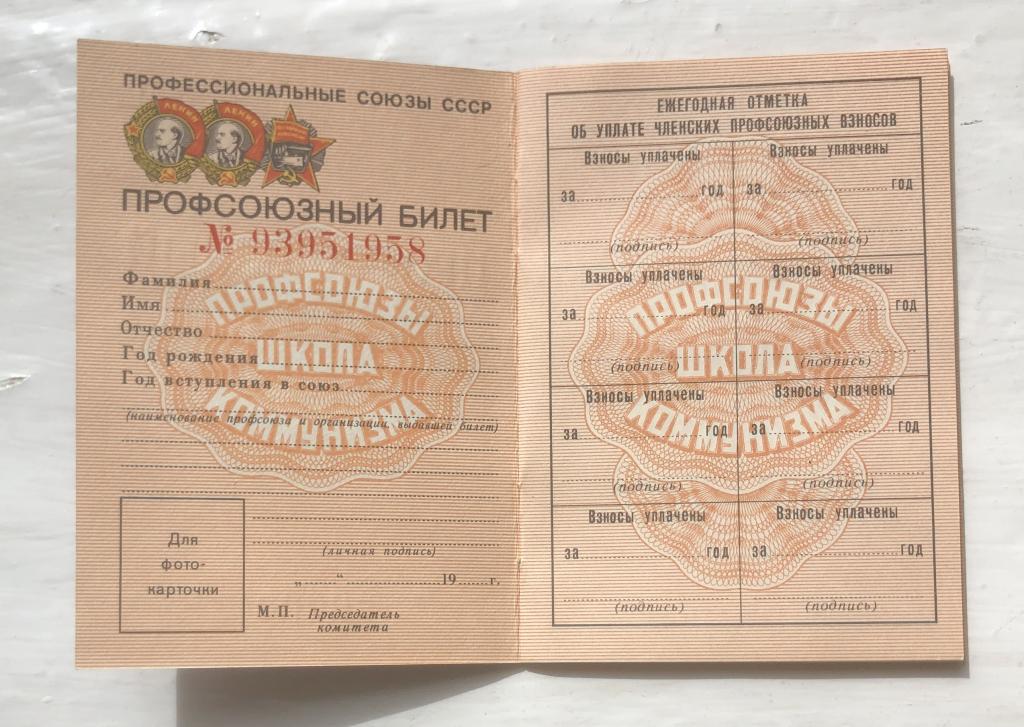 ПРОФЕССИОНАЛЬНЫЕ СОЮЗЫ СССР
ЛЕНИН ЛЕНИН
ПРОФСОЮЗНЫЙ БИЛЕТ
№ 93951958
Фамилия
Имя
Отчество
Год рождения
Год вступления в союз
(наименование профсоюза и организации, выдавшей билет)
ПРОФСОЮЗЫ
ШКОЛА
КОММУНИЗМА
Для
фото-
карточки
(личная подпись)
„ “ 19 г.
М.П. Председатель
комитета
ЕЖЕГОДНАЯ ОТМЕТКА
ОБ УПЛАТЕ ЧЛЕНСКИХ ПРОФСОЮЗНЫХ ВЗНОСОВ
Взносы уплачены Взносы уплачены
за год за год
(подпись) (подпись)
Взносы уплачены Взносы уплачены
за год за год
(подпись) (подпись)
Взносы уплачены Взносы уплачены
за год за год
(подпись) (подпись)
Взносы уплачены Взносы уплачены
за год за год
(подпись) (подпись)
ПРОФСОЮЗЫ
ШКОЛА
КОММУНИЗМА